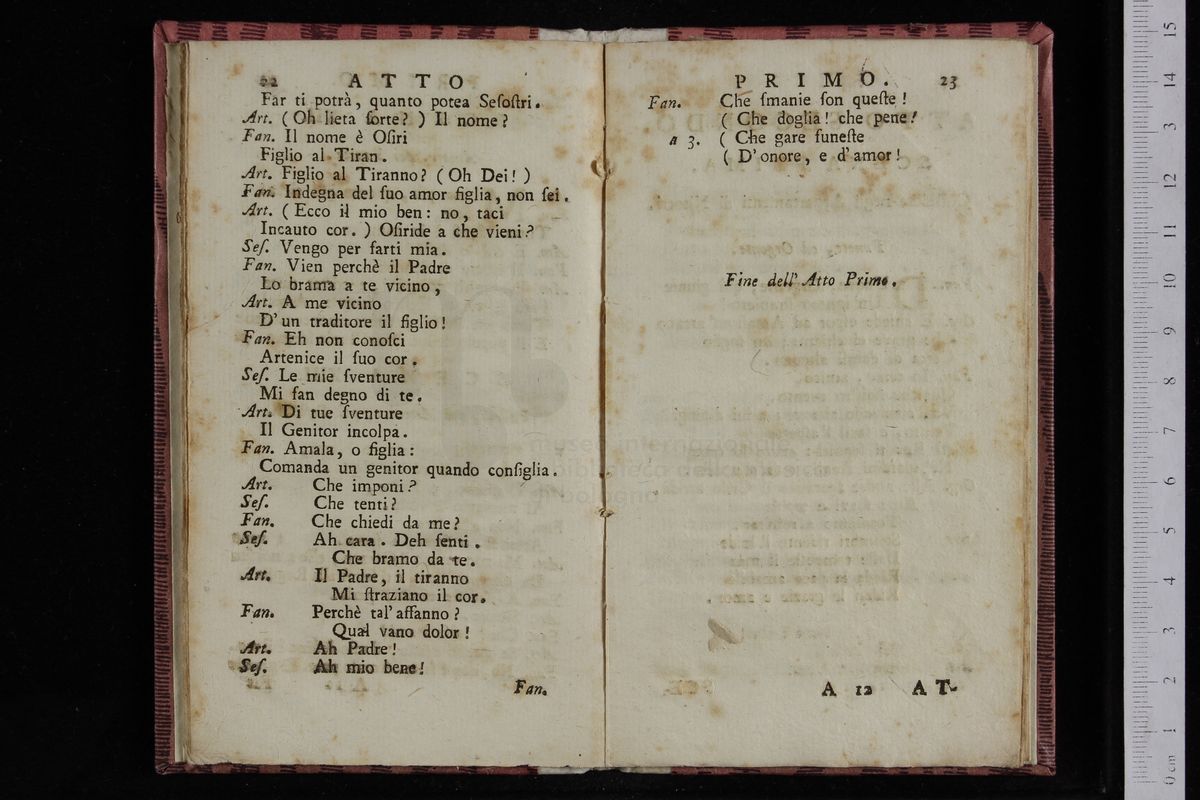 22 ATTO
Far ti potrà, quanto potea Seſoſtri.
Art. (Oh lieta ſorte? ) Il nome?
Fan. Il nome è Oſiri
Figlio al Tiran.
Art. Figlio al Tiranno? (Oh Dei! )
Fan. Indegna del ſuo amor figlia, non ſei.
Art. (Ecco il mio ben: no, taci
Incauto cor. ) Oſiride a che vieni?
Seſ. Vengo per farti mia.
Fan. Vien perchè il Padre
Lo brama a te vicino,
Art. A me vicino
D'un traditore il figlio!
Fan. Eh non conoſci
Artenice il ſuo cor.
Seſ. Le mie ſventure
Mi fan degno di te.
Art. Di tue ſventure
Il Genitor incolpa.
Fan. Amala, o figlia:
Comanda un genitor quando conſiglia.
Art. Che imponi?
Seſ. Che tenti?
Fan. Che chiedi da me?
Seſ. Ah cara. Deh ſenti.
Che bramo da te.
Art. Il Padre, il tiranno
Mi ſtraziano il cor.
Fan. Perchè tal'affanno?
Qual vano dolor!
Art. Ah Padre!
Seſ. Ah mio bene!
Fan.
PRIMO. 23
Fan. Che ſmanie ſon queſte!
( Che doglia! che pene!
a 3. ( Che gare funeſte
( D'onore, e d'amor!
Fine dell'Atto Primo.
A 12 AT-
museo internazionale
e biblioteca della musica
di bologna
0 cm 1 2 3 4 5 6 7 8 9 10 11 12 13 14 15